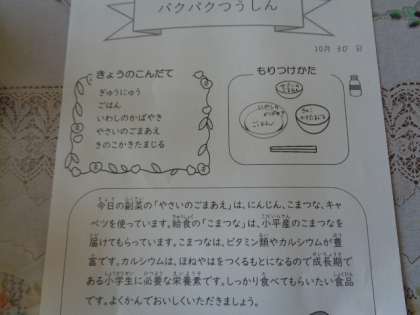 パクパクつうしん
10月 30 日
きょうのこんだて
ぎゅうにゅう
ごはん
いわしのかばやき
やさいのごまあえ
きのこかきたまじる
もりつけかた
ごはん
今日の副菜の「やさいのごまあえ」は、にんじん、こまつな、キャ
ベツを使っています。給食の「こまつな」は、小平産のこまつなを
届けてもらっています。こまつなは、ビタミン類やカルシウムが豊
富です。カルシウムは、ほねやはをつくるもとになるので成長期で
ある小学生に必要な栄養素です。しっかり食べてもらいたい食品
です。よくかんでおいしくいただきましょう。